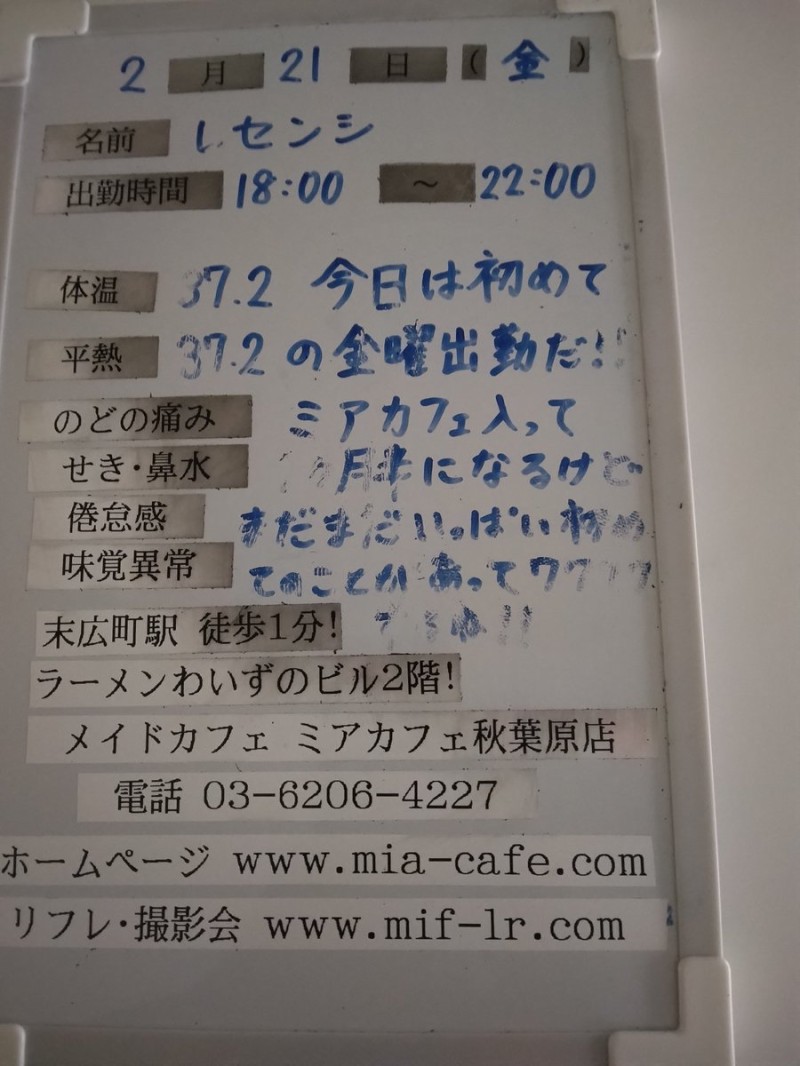 2月21日(金)
名前 しセンシ
出勤時間 18:00 ～ 22:00
体温 37.2 今日は初めて
平熱 37.2 の金曜出勤だ!!
のどの痛み ミアカフェ入って
せき・鼻水 月半になるけど
倦怠感 まだまだいっぱい初め
味覚異常 てのことがあってワクワク
末広町駅 徒歩1分! !!
ラーメンわいずのビル2階!
メイドカフェ ミアカフェ秋葉原店
電話 03-6206-4227
ホームページ www.mia-cafe.com
リフレ・撮影会 www.mif-lr.com